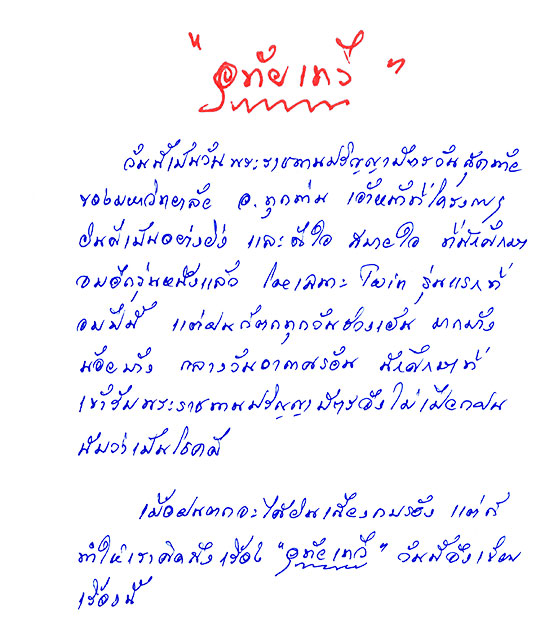 "อุทัยเทวี"
วันนี้เป็นวันพระราชทานปริญญาบัตรวันสุดท้าย
ของมหาวิทยาลัย อ.ทุกท่าน เจ้าหน้าที่โครงการ
ยินดีเป็นอย่างยิ่ง และดีใจ สบายใจ ที่นักศึกษา
จบอีกรุ่นหนึ่งแล้ว โดยเฉพาะ Twin รุ่นแรกที่
จบปีนี้ แต่ฝนก็ตกทุกวันช่วงเย็น มากบ้าง
น้อยบ้าง กลางวันอากาศร้อน นักศึกษาที่
เข้ารับพระราชทานปริญญาบัตรจึงไม่เปียกฝน
นับว่าเป็นโชคดี
เมื่อฝนตกจะได้ยินเสียงกบร้อง แต่ก็
ทำให้เราคิดถึงเรื่อง "อุทัยเทวี" วันนี้จึงเขียน
เรื่องนี้